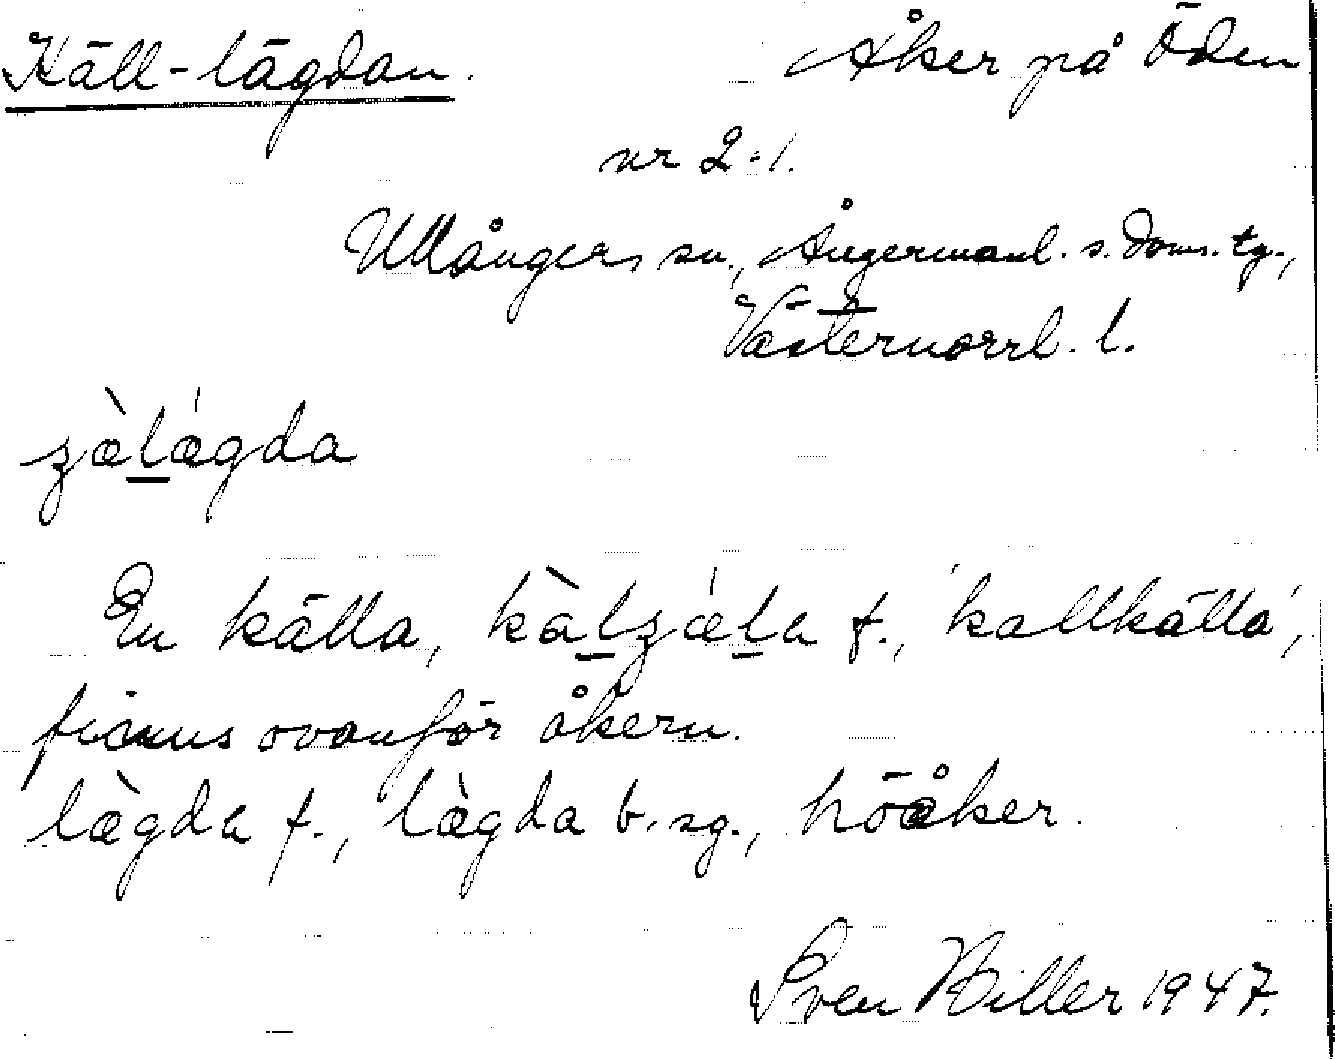 Käll-lägdan. Åker på Öden
nr 2:1.
Ullångers sn., Ångermanl. s. doms. tg.,
Västernorrl. l.
ʒæ̀læ̍gda
En källa, kàlʒæ̍la f., 'kallkälla',
finnes ovanför åkern.
læ̀gda f., læ̀gda b. sg., höåker.
Sven Hiller 1947.